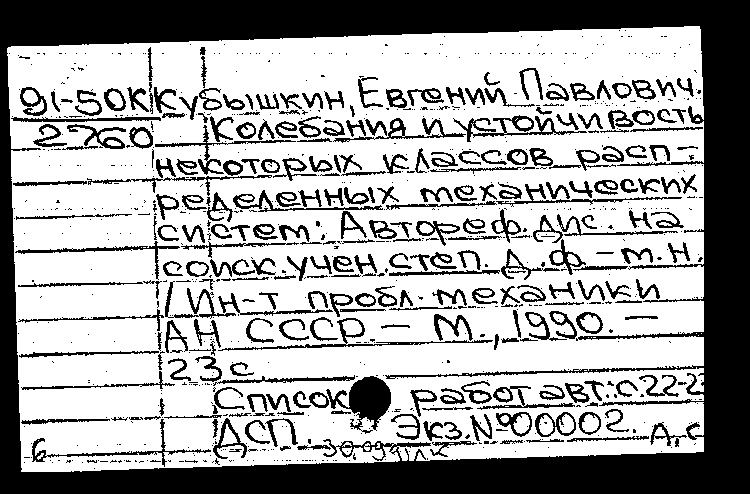 91-50К Кубышкин, Евгений Павлович.
2760 Колебания и устойчивость
некоторых классов расп-
ределенных механических
систем: Автореф. дис. на
соиск. учен. степ. д. ф.-м. н.
/ Ин-т пробл. механики
АН СССР. — М., 1990. —
23 с.
Список работ авт.: с. 22-23
ДСП. Экз. № 00002.
6 А, с